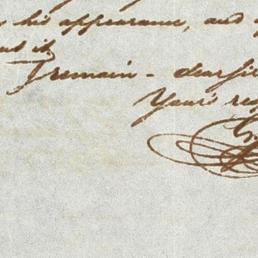 his appearance, and
it
I remain - dear Sir
Your's